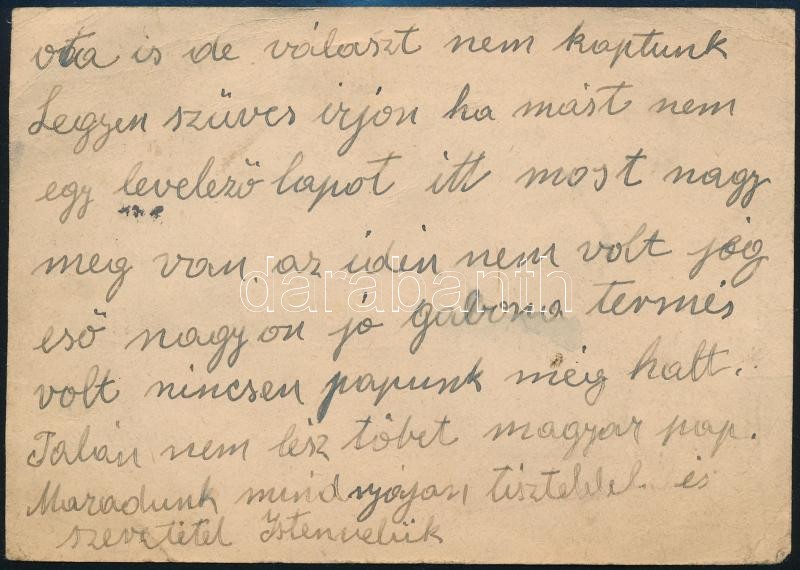 ota is de választ nem kaptunk
Legyen szüves irjon ha mást nem
egy levelező lapot itt most nagy
meg van, az idén nem volt jég
eső nagyon jó gabona termés
volt nincsen papunk még halt.
Talán nem lész töbet magyar pap.
Maradunk mindnyájan tiszteldel és
szeretetel Istenvelük
darabanth